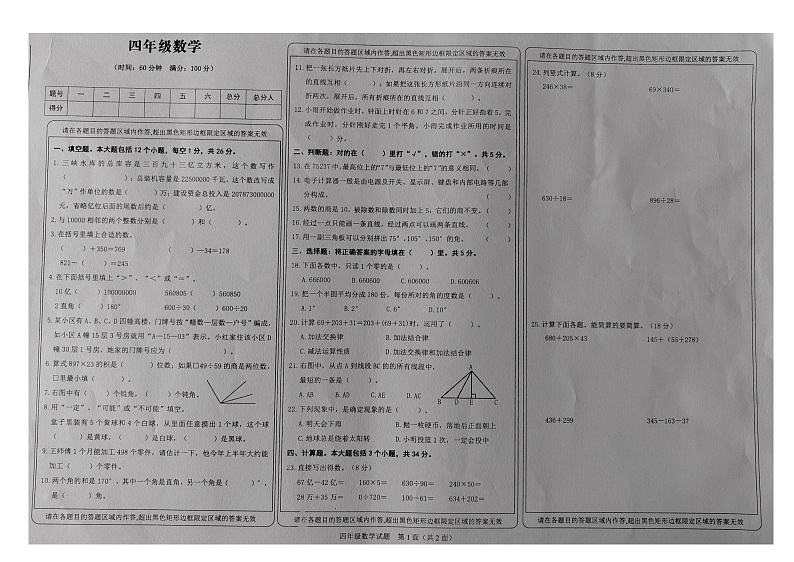 四年级数学
（时间：60分钟 满分：100分）
题号 一 二 三 四 五 六 总分 总分人
得分
请在各题目的答题区域内作答,超出黑色矩形边框限定区域的答案无效
一、填空题。本大题包括12个小题，每空1分，共26分。
1.三峡水库的总库容是三百九十三亿立方米，这个数写作
（ ）；总装机容量是22500000千瓦，这个数改写成
“万”作单位的数是（ ）万；建设资金总投入是207873000000
元，省略亿位后面的尾数后约是（ ）亿。
2.与10000相邻的两个整数分别是（ ）和（ ）。
3.在括号里填上合适的数。
（ ）+350=769 （ ）—34=178
821-（ ）=245
4.在下面括号里填上“＞”、“＜”或“＝”。
10亿（ ）100000000 560805（ ）560850
2直角（ ）180° 600÷30（ ）600÷20
5.某小区有A、B、C、D四幢高楼，门牌号按“幢数—层数—户号”编成，
如小区A幢15层3号房就用“A—15—03”表示。小红家住该小区D
幢30层1号房，她家的门牌号应为（ ）。
6.算式897×23的积是（ ）位数；如果□49÷59的商是两位数，
□里最小填（ ）。
7.右图中有（ ）个锐角，（ ）个钝角。
8.用“一定”、“可能”或“不可能”填空。
盒子里装有5个黄球和4个白球，从里面任意摸出1个球，这个球
（ ）是黄球，（ ）是白球，（ ）是黑球。
9.王师傅1个月能加工498个零件，请估计一下，他今年上半年大约能
加工（ ）个零件。
10.两个角的和是170°，其中一个角是直角，另一个角是（ ）°，
是（ ）角。
请在各题目的答题区域内作答,超出黑色矩形边框限定区域的答案无效
请在各题目的答题区域内作答,超出黑色矩形边框限定区域的答案无效
11.把一张长方形纸片先上下对折，再左右对折，展开后，两条折痕所在
的直线互相（ ）；如果把这张长方形纸沿同一方向连续对
折两次，展开后，所有折痕所在的直线互相（ ）。
12.小雨开始做作业时，钟面上时针在6和7之间，分针正好指着5，完
成作业时，分针刚好走完1个平角。小雨完成作业所用的时间是
（ ）分。
二、判断题：对的在（ ）里打“√”，错的打“×”。共5分。
13.在75237中,最高位上的“7”与最低位上的“7”的意义相同。（ ）
14.电子计算器一般是由电源及开关、显示屏、键盘和内部电路等几部
分构成。 （ ）
15.两数的商是10，被除数和除数同时加上5，它们的商不变。（ ）
16.经过一点只能画一条直线，经过两点可以画两条直线。（ ）
17.用一副三角板可以分别拼出75°、105°、150°的角。（ ）
三、选择题：将正确答案的字母填在（ ）里。共5分。
18.下面各数中，只读1个零的是（ ）。
A.666000 B.660660 C.606000 D.600606
19.把一个半圆平均分成180份，每份所对的角的度数是（ ）。
A.1° B.2° C.6° D.10°
20.计算69+203+31=203+(69+31)时，运用了（ ）。
A.加法交换律 B.加法结合律
C.减法运算性质 D.加法交换律和加法结合律
21.右图中，从点A到线段BC的的所有线段中，
最短的一条是（ ）。
A.AB B.AD C.AE D.AC
A
B D E C
22.下列现象中，是确定现象的是（ ）。
A.明天会下雨 B.抛一枚硬币，落地后正面朝上
C.地球总是绕着太阳转 D.小明投篮1次，一定会投中
四、计算题。本大题包括3个小题，共34分。
23.直接写出得数。（8分）
67亿－42亿= 160×5= 630÷90= 240×50=
28万＋35万= 0÷720= 100-61= 634+202=
请在各题目的答题区域内作答,超出黑色矩形边框限定区域的答案无效
四年级数学试题 第1面（共2面）
请在各题目的答题区域内作答,超出黑色矩形边框限定区域的答案无效
24.列竖式计算。（8分）
246×38= 69×340=
630÷18= 896÷28=
25.计算下面各题，能简算的要简算。（18分）
680+205×43 145+（55+278）
436+299 345－163－37
请在各题目的答题区域内作答,超出黑色矩形边框限定区域的答案无效